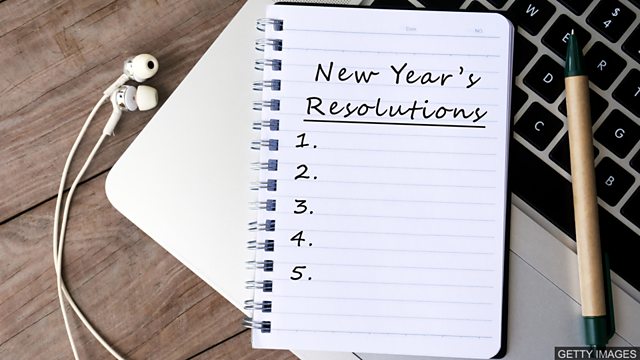 Date
NO.
New Year's
Resolutions
1.
2.
3.
4.
5.
$
4
E
R
D
F
C
V
B
GETTY IMAGES